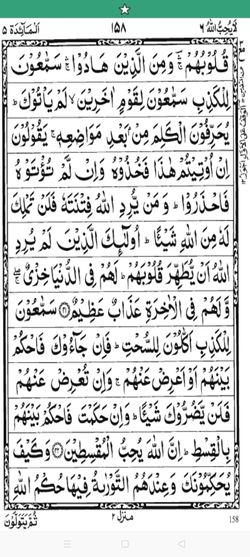 لَا يُحِبُّ اللّٰهُ ٦ ١٥٨ اَلْمَآئِدَة ٥
قُلُوْبُهُمْ ۛۚ وَمِنَ الَّذِيْنَ هَادُوْا ۛۚ سَمّٰعُوْنَ
لِلْكَذِبِ سَمّٰعُوْنَ لِقَوْمٍ اٰخَرِيْنَ ۙ لَمْ يَاْتُوْكَ ؕ
يُحَرِّفُوْنَ الْكَلِمَ مِنْۢ بَعْدِ مَوَاضِعِهٖ ۚ يَقُوْلُوْنَ
اِنْ اُوْتِيْتُمْ هٰذَا فَخُذُوْهُ وَاِنْ لَّمْ تُؤْتَوْهُ
فَاحْذَرُوْا ؕ وَمَنْ يُّرِدِ اللّٰهُ فِتْنَتَهٗ فَلَنْ تَمْلِكَ
لَهٗ مِنَ اللّٰهِ شَيْـًٔا ؕ اُولٰٓئِكَ الَّذِيْنَ لَمْ يُرِدِ
اللّٰهُ اَنْ يُّطَهِّرَ قُلُوْبَهُمْ ؕ لَهُمْ فِى الدُّنْيَا خِزْىٌ ۚۖ
وَّلَهُمْ فِى الْاٰخِرَةِ عَذَابٌ عَظِيْمٌ ﴿٤١﴾ سَمّٰعُوْنَ
لِلْكَذِبِ اَكّٰلُوْنَ لِلسُّحْتِ ؕ فَاِنْ جَآءُوْكَ فَاحْكُمْ
بَيْنَهُمْ اَوْ اَعْرِضْ عَنْهُمْ ۚ وَاِنْ تُعْرِضْ عَنْهُمْ
فَلَنْ يَّضُرُّوْكَ شَيْـًٔا ؕ وَاِنْ حَكَمْتَ فَاحْكُمْ بَيْنَهُمْ
بِالْقِسْطِ ؕ اِنَّ اللّٰهَ يُحِبُّ الْمُقْسِطِيْنَ ﴿٤٢﴾ وَكَيْفَ
يُحَكِّمُوْنَكَ وَعِنْدَهُمُ التَّوْرٰىةُ فِيْهَا حُكْمُ اللّٰهِ
ثُمَّ يَتَوَلَّوْنَ منزل ٢ 158